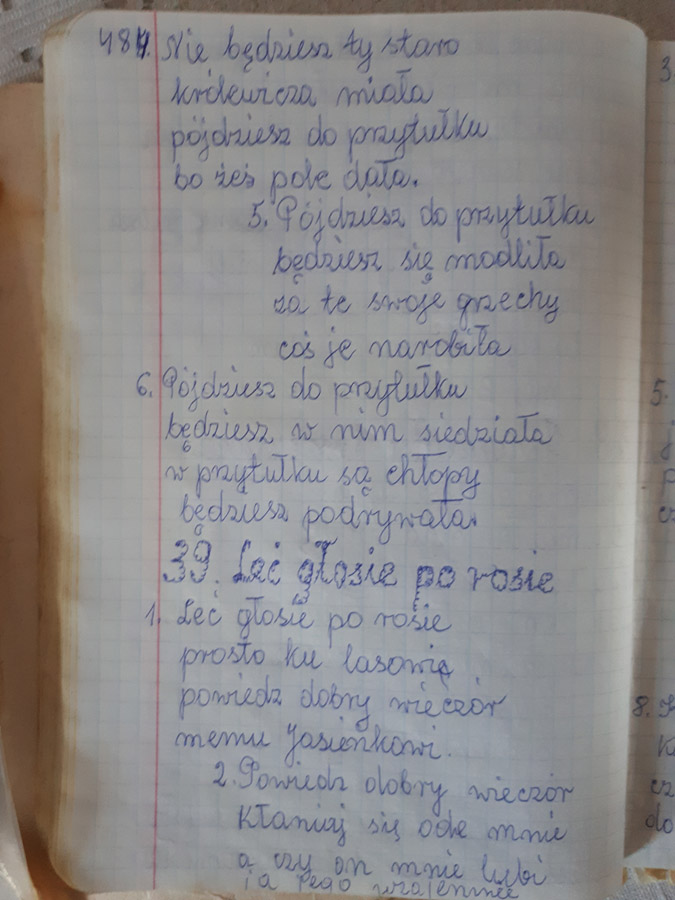 48 4. Nie będziesz ty staro
królewicza miała
pójdziesz do przytułku
bo żeś pole dała.
5. Pójdziesz do przytułku
będziesz się modliła
za te swoje grzechy
coś je narobiła
6. Pójdziesz do przytułku
będziesz w nim siedziała
w przytułku są chłopy
będziesz podrywała.
39. Leć głosie po rosie
1. Leć głosie po rosie
prosto ku lasowi
powiedz dobry wieczór
memu Jasieńkowi.
2. Powiedz dobry wieczór
kłaniaj się ode mnie
a czy on mnie lubi
i a jego wzajemnie
3
5.
8.
do